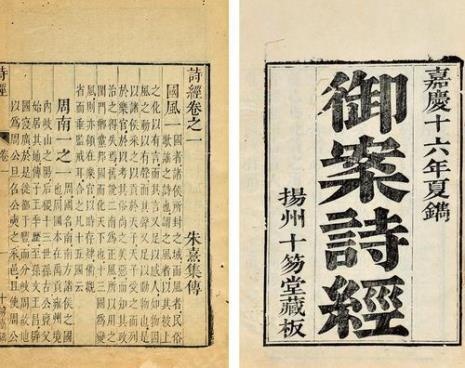 嘉慶十六年夏鐫
御案詩經
揚州十笏堂藏板
詩經卷之一
朱熹集傳
國風一
國者諸侯所封之域而風者民俗
歌謠之詩也謂之風者以其被上
之化以有言而其言又足以感人如物因
風之動以有聲而其聲又足以動物也是
以諸侯采之以貢於天子天子受之而列
於樂官於以考其俗尚之美惡而知其政
治之得失焉舊說二南為正風所以用之
閨門鄉黨邦國而化天下也十三國為變
風則亦領在樂官以時存肄備觀
省而垂監戒耳合之凡十五國云
周南一之一
周國名南南方諸侯之國
也周國本在禹貢雍州境
內岐山之陽后稷十三世孫古公亶父
始居其地傳子王季歷至孫文王昌辟
國寖廣於是徙都于豐而分岐周故地
以為周公旦召公奭之采邑且使周公
詩經
卷一